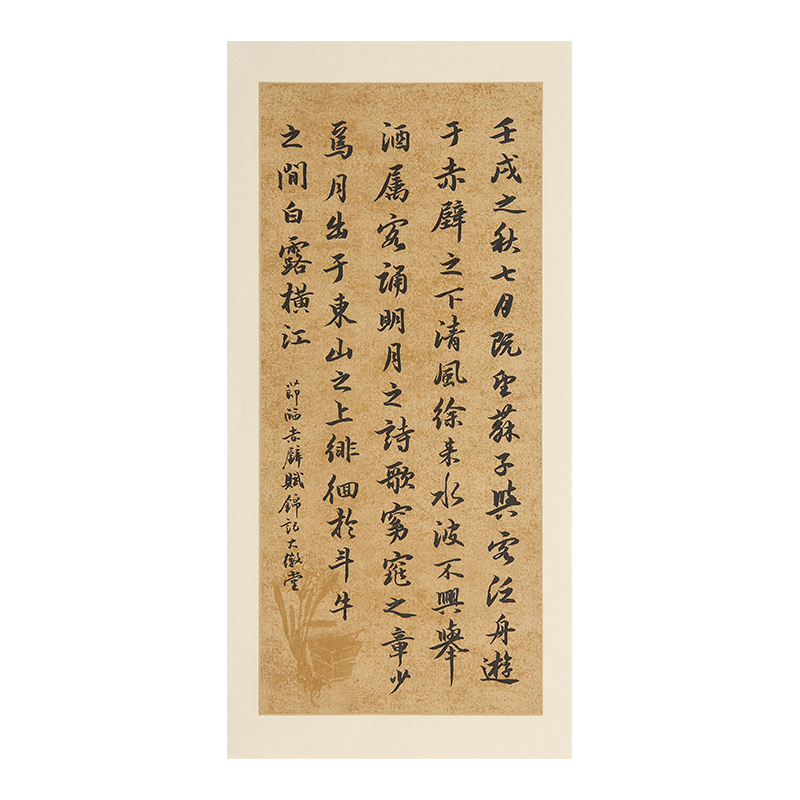 壬戌之秋七月既望蘇子與客泛舟遊
于赤壁之下清風徐来水波不興舉
酒属客誦明月之詩歌窈窕之章少
焉月出于東山之上徘徊於斗牛
之間白露橫江
節臨赤壁賦錦記大徽堂